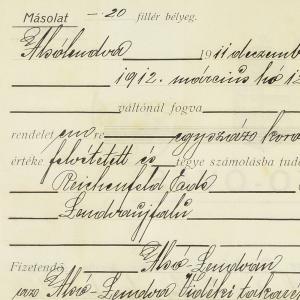 Másolat -.20 fillér bélyeg.
Alsólendva 1911 deczemb
1912. március hó 1
váltónál fogva
rendelet em re egyszáz koro
értéke felvétetett és tegye számolásba tud
Reichenfeld Ede
Lendvaujfalu
Fizetendő Alsó-Lendván
Alsó-Lendva Vidéki takar